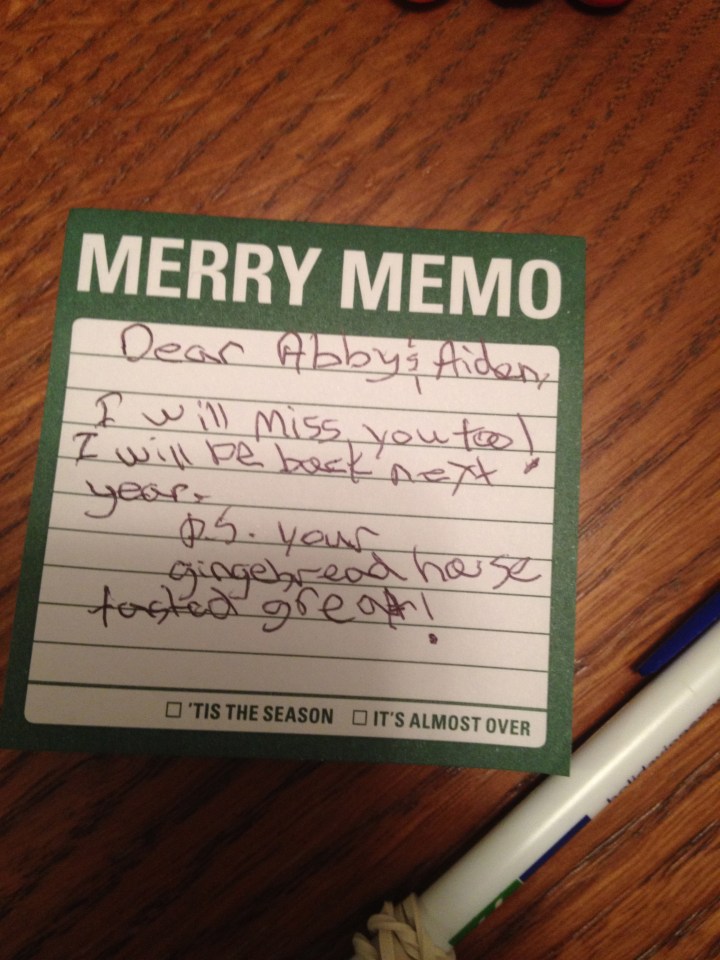 MERRY MEMO
Dear Abby & Aiden,
I will miss you too!
I will be back next
year.
P.S. your
gingerbread house
tasted great!
☐ 'TIS THE SEASON ☐ IT'S ALMOST OVER